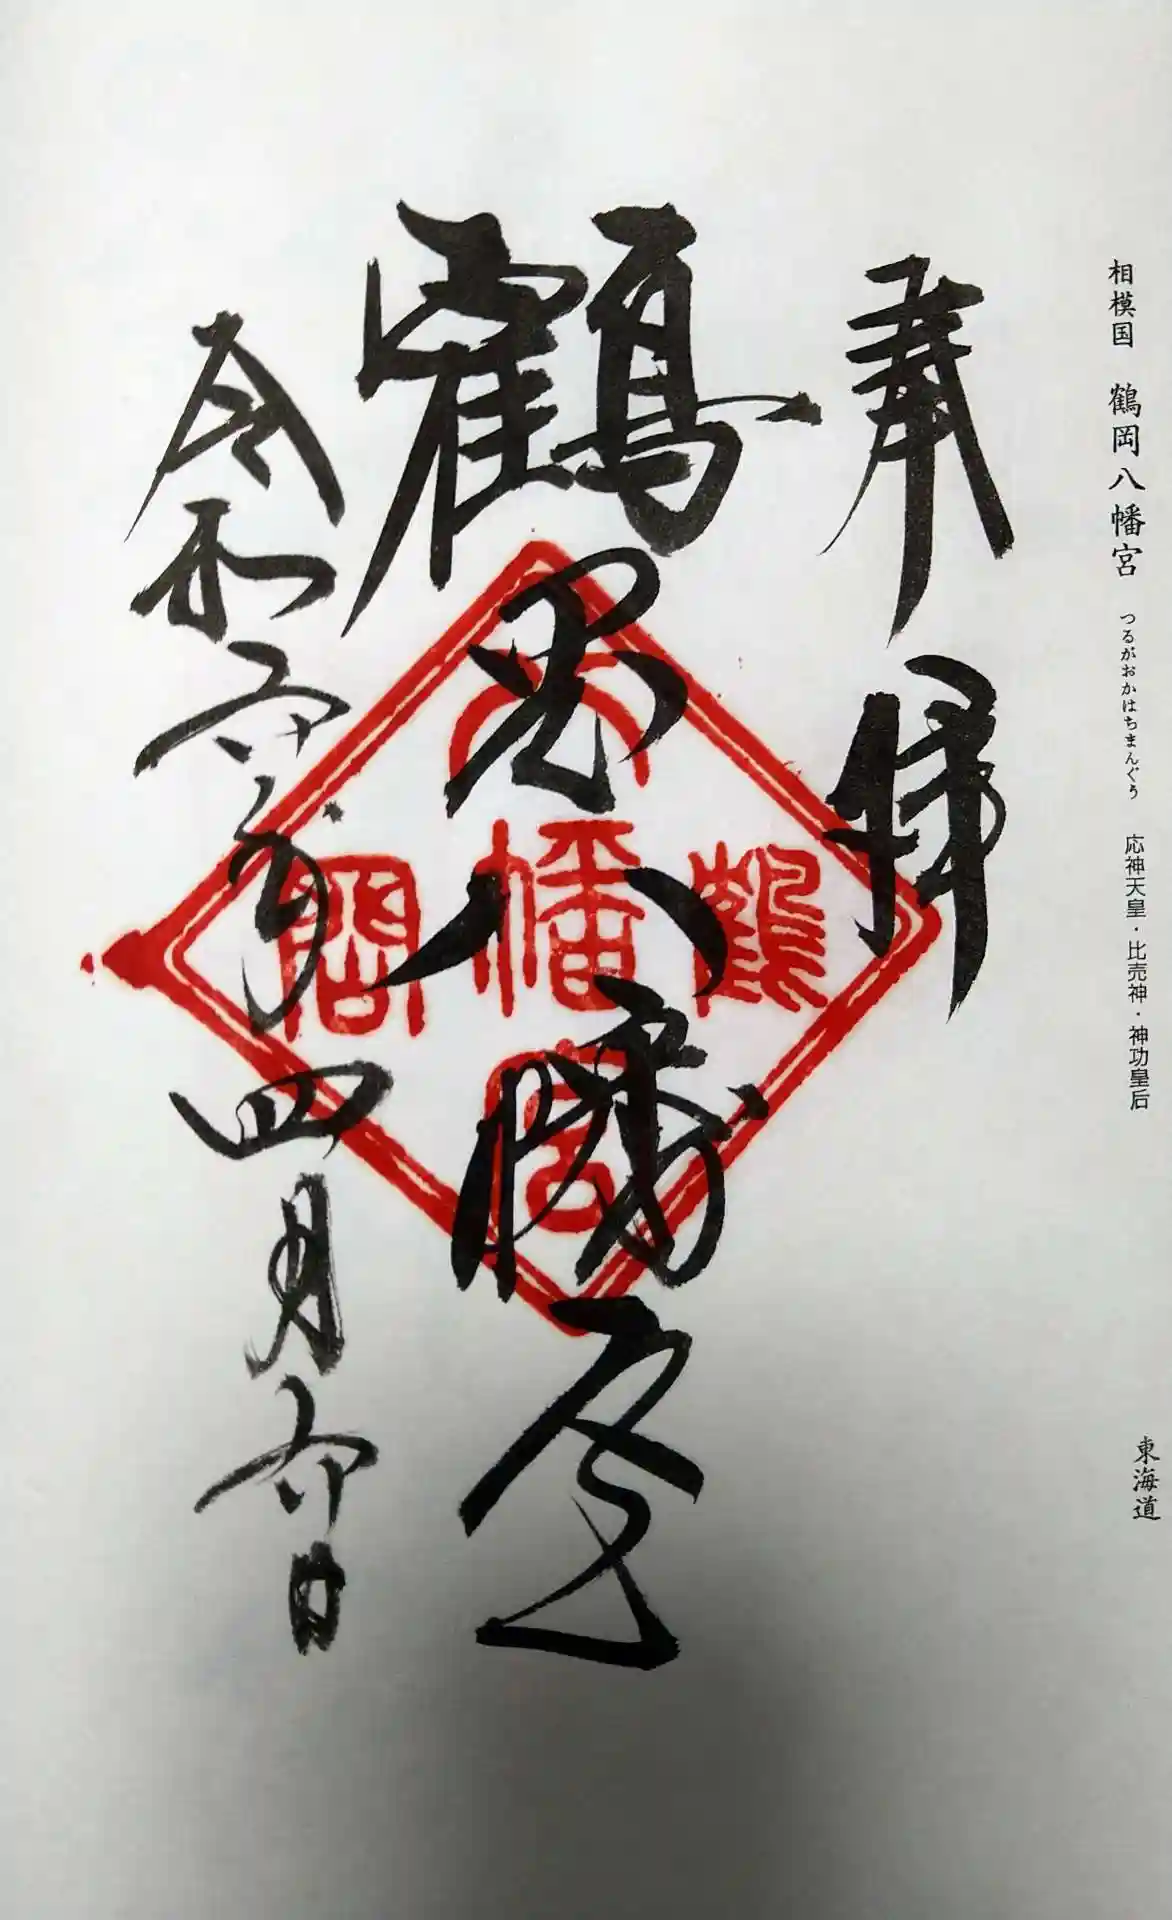 相模国 鶴岡八幡宮 つるがおかはちまんぐう 応神天皇・比売神・神功皇后 東海道
奉拝
鶴岡八幡宮
令和六年四月六日
八
鶴幡岡
宮